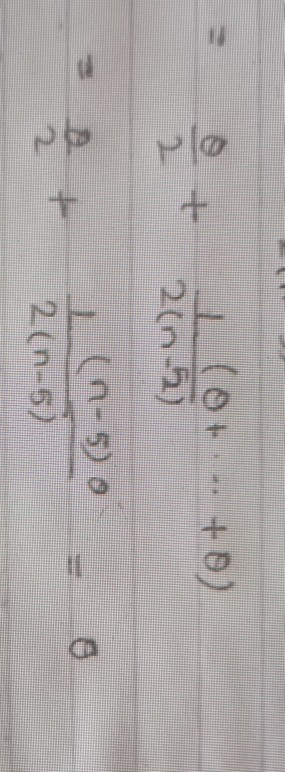 = θ/2 + 1/2(n-5) (θ + ... + θ)
= θ/2 + 1/2(n-5) (n-5) θ = θ